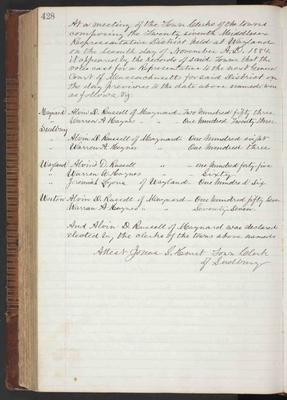 428
At a meeting of the Town Clerks of the towns
composing the Twenty seventh Middlesex
Representative District held at Wayland
on the Seventh day of November A.D. 1884
It appeared by the records of said Towns that the
vote cast for a Representative to the next General
Court of Massachusetts for said District on
the day previous to the date above named was
as follows viz:
Maynard Alvin D. Russell of Maynard - Two Hundred fifty three
Warren A. Haynes " - One Hundred Twenty Three
Sudbury
" Alvin D. Russell of Maynard - One Hundred eight
" Warren A. Haynes " One Hundred three
Wayland Alvin D. Russell " - one Hundred forty five
" Warren A. Haynes " - Sixty
" Jeremiah Lyons of Wayland - One Hundred Six
Weston Alvin D. Russell of Maynard - One Hundred fifty
Warren A. Haynes " - Seventy Seven
And Alvin D. Russell of Maynard was declared
elected by the clerks of the towns above named
Attest Jonas S. Hunt Town Clerk
of Sudbury